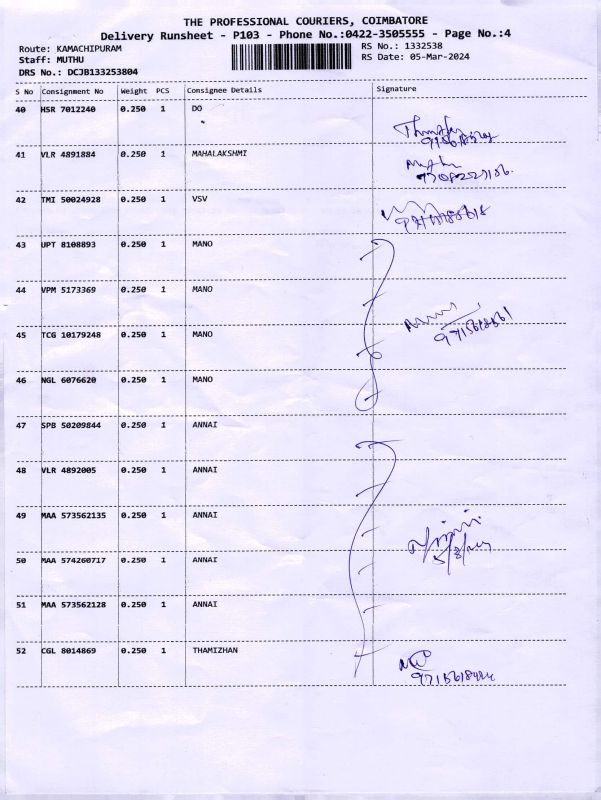 THE PROFESSIONAL COURIERS, COIMBATORE
Delivery Runsheet - P103 - Phone No.:0422-3505555 - Page No.:4
Route: KAMACHIPURAM RS No.: 1332538
Staff: MUTHU RS Date: 05-Mar-2024
DRS No.: DCJB133253804
S No Consignment No Weight PCS Consignee Details Signature
40 HSR 7012240 0.250 1 DO
41 VLR 4891884 0.250 1 MAHALAKSHMI
42 TMI 50024928 0.250 1 VSV
43 UPT 8108893 0.250 1 MANO
44 VPM 5173369 0.250 1 MANO
45 TCG 10179248 0.250 1 MANO
46 NGL 6076620 0.250 1 MANO
47 SPB 50209844 0.250 1 ANNAI
48 VLR 4892005 0.250 1 ANNAI
49 MAA 573562135 0.250 1 ANNAI
50 MAA 574260717 0.250 1 ANNAI
51 MAA 573562128 0.250 1 ANNAI
52 CGL 8014869 0.250 1 THAMIZHAN